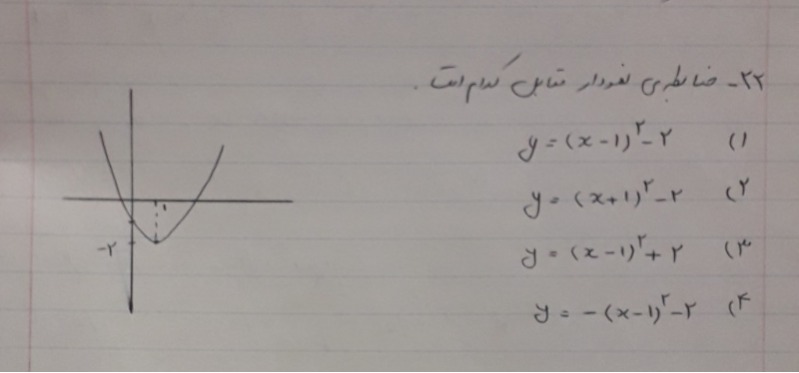 ۲۲- ضابطه‌ی نمودار مقابل کدام است.
۱) y = (x-۱)^۲ - ۲
۲) y = (x+۱)^۲ - ۲
۳) y = (x-۱)^۲ + ۲
۴) y = -(x-۱)^۲ - ۲
۱
-۲